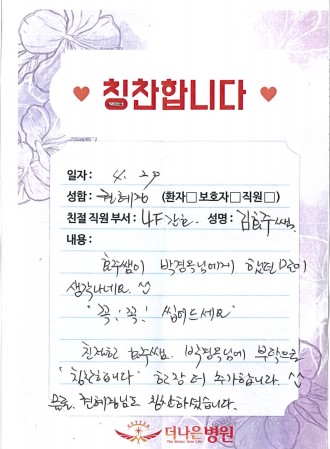 칭찬합니다
일자 : 4. 29
성함 : 권혜정 (환자□보호자□직원□)
친절 직원 부서 : 4F 간호. 성명 : 김효주쌤.
내용 :
효주쌤이 박경목님에게 했던 말이
생각나네요 ^^
"꼭! 꼭! 씹어드세요"
친절한 효주쌤. 박경목님에 부탁으로
"칭찬합니다" 한장 더 추가합니다. ^^
물론, 권혜정님도 칭찬하셨습니다.
BETTER
더나은병원
The Better Your Life